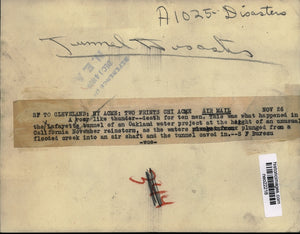 A1025-Disasters
Tunnel Disaster
SF TO CLEVELAND: NY ACME: TWO PRINTS CHI ACME AIR MAIL NOV 26
A roar like thunder--death for ten men. This was what happened in
the Lafayette tunnel of an Oakland water project at the height of an unusual
California November rainstorm, as the waters plunged from a
flooded creek into an air shaft and the tunnel caved in.--S F Doran